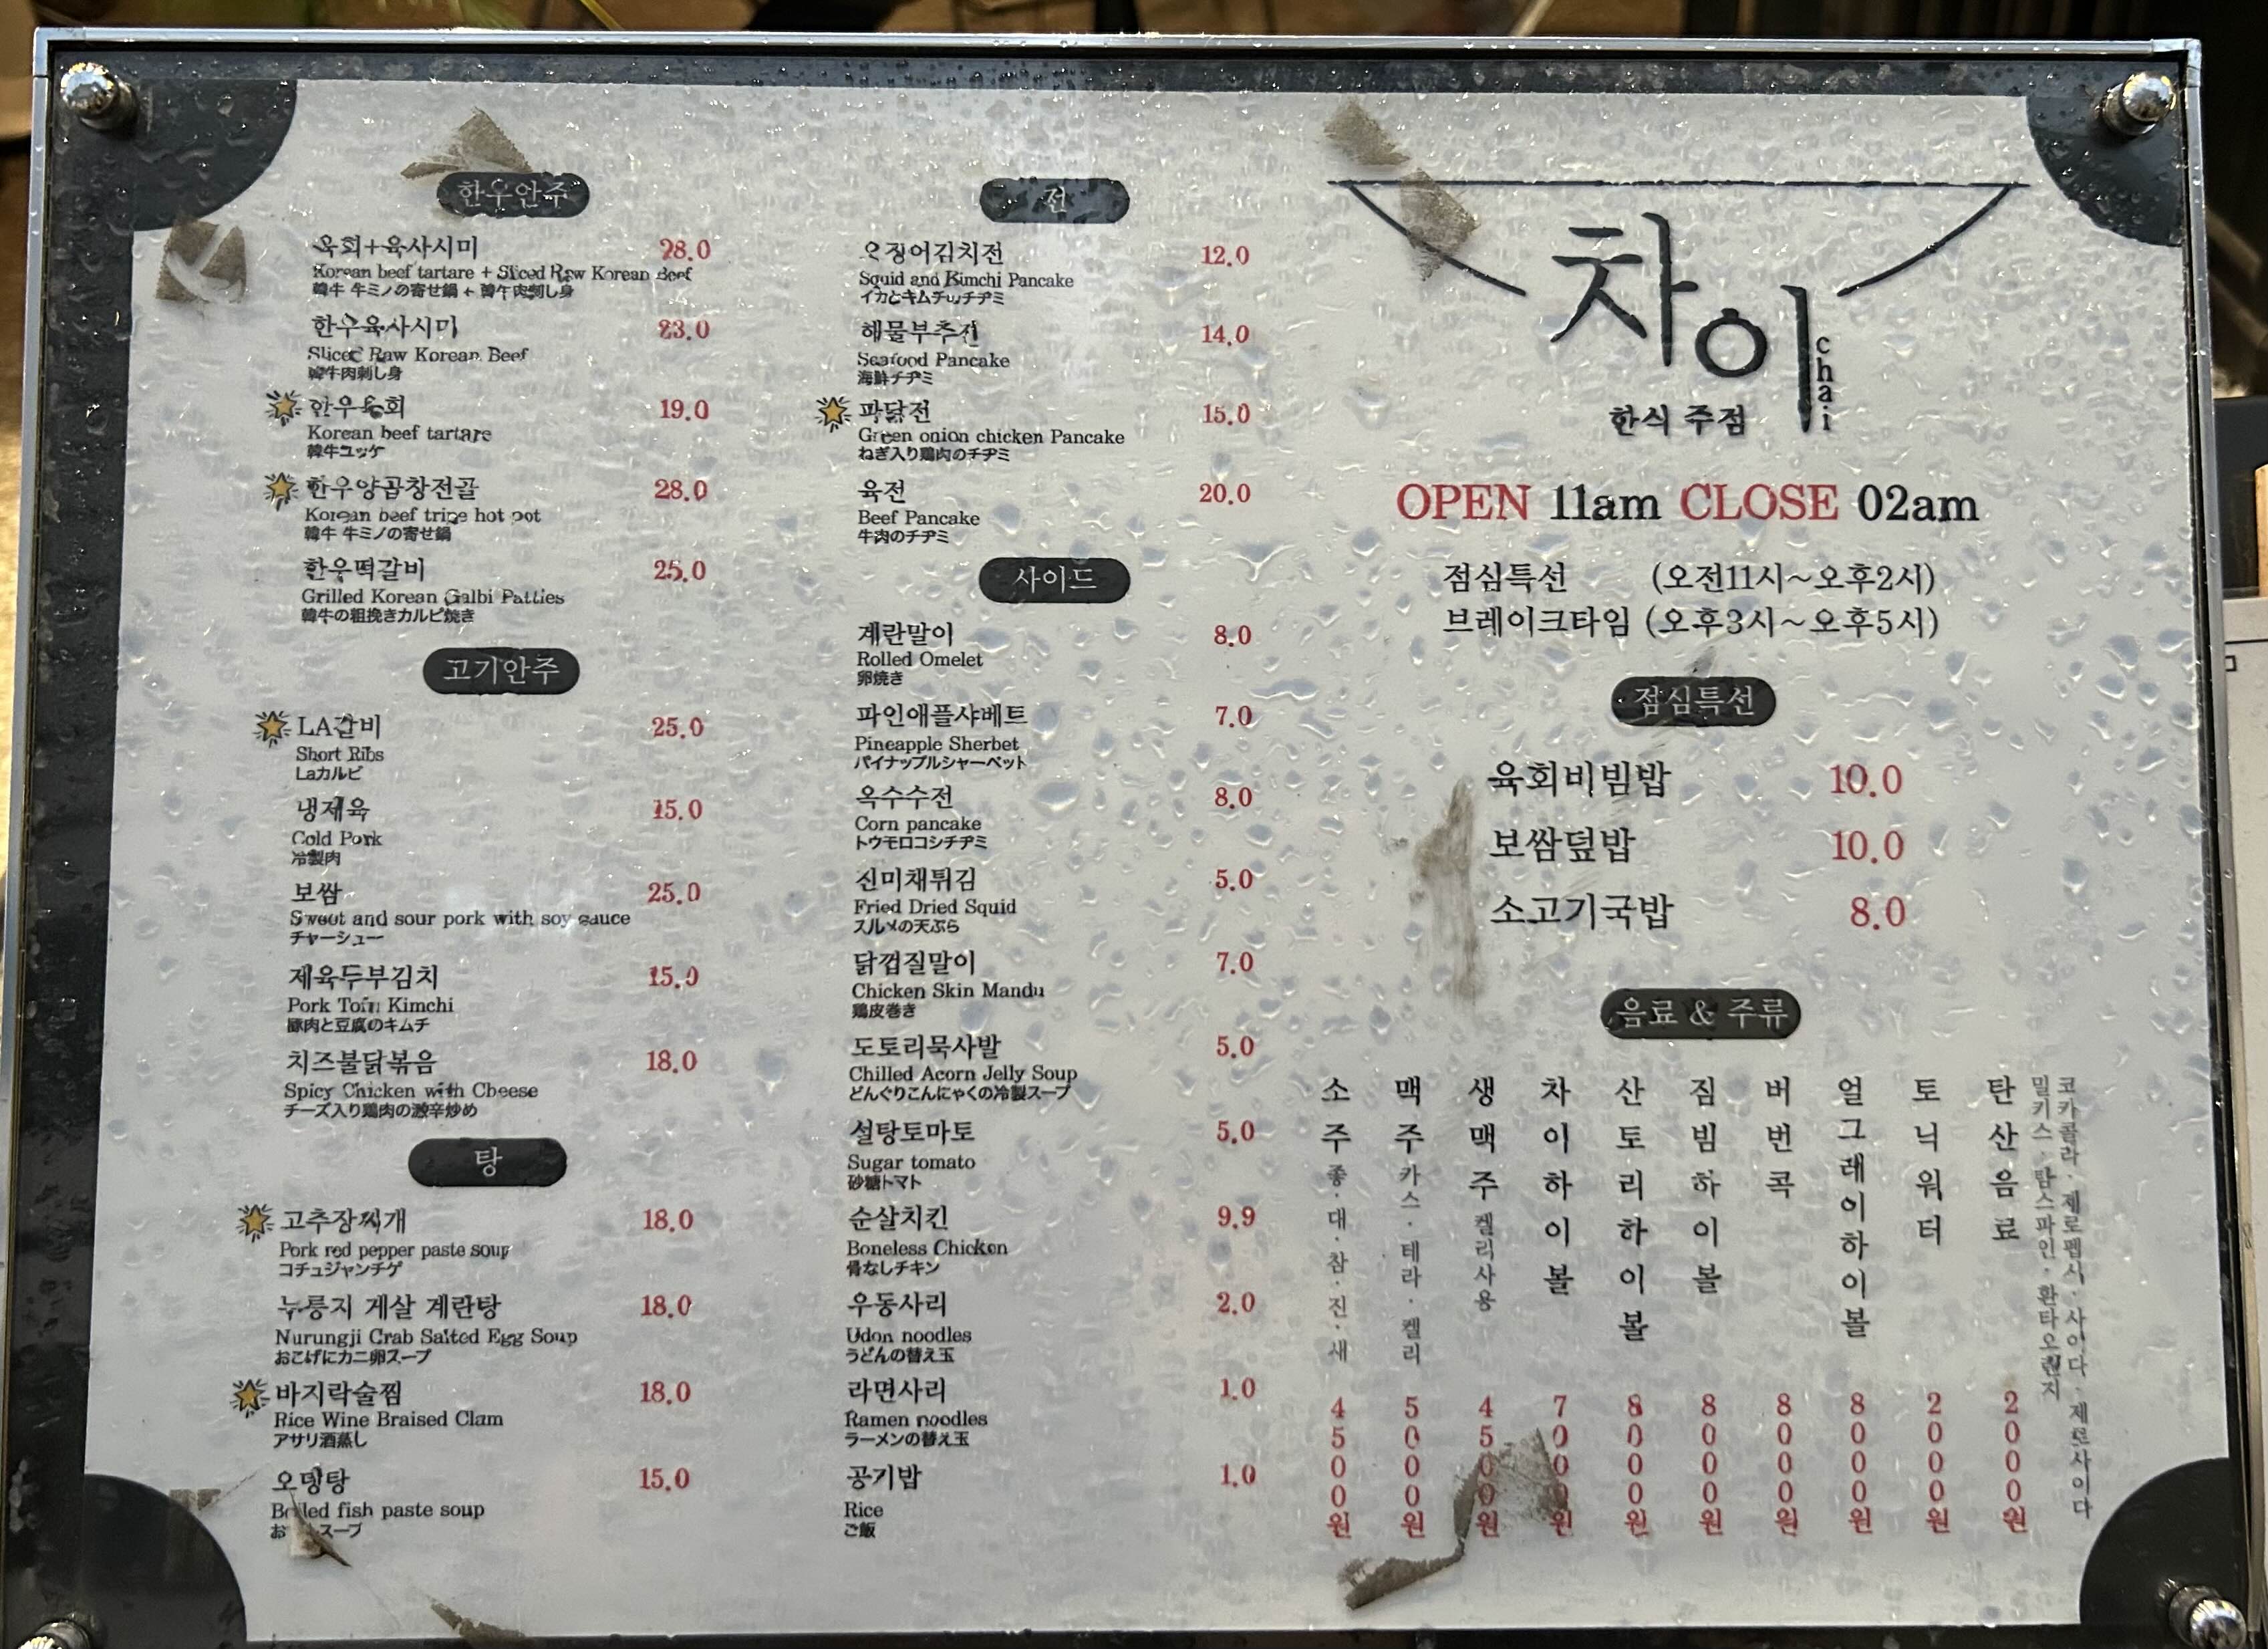 한우안주
육회+육사시미 28.0
Korean beef tartare + Sliced Raw Korean Beef
韓牛 牛ミノの寄せ鍋 + 韓牛肉刺し身
한우육사시미 23.0
Sliced Raw Korean Beef
韓牛肉刺し身
한우육회 19.0
Korean beef tartare
韓牛ユッケ
한우양곱창전골 28.0
Korean beef tripe hot pot
韓牛 牛ミノの寄せ鍋
한우떡갈비 25.0
Grilled Korean Galbi Patties
韓牛の粗挽きカルビ焼き
고기안주
LA갈비 25.0
Short Ribs
Laカルビ
냉제육 15.0
Cold Pork
冷製肉
보쌈 25.0
Sweet and sour pork with soy sauce
チャーシュー
제육두부김치 15.0
Pork Tofu Kimchi
豚肉と豆腐のキムチ
치즈불닭볶음 18.0
Spicy Chicken with Cheese
チーズ入り鶏肉の激辛炒め
탕
고추장찌개 18.0
Pork red pepper paste soup
コチュジャンチゲ
누룽지 게살 계란탕 18.0
Nurungji Crab Salted Egg Soup
おこげにカニ卵スープ
바지락술찜 18.0
Rice Wine Braised Clam
アサリ酒蒸し
오뎅탕 15.0
Boiled fish paste soup
スープ
전
오징어김치전 12.0
Squid and Kimchi Pancake
イカとキムチのチヂミ
해물부추전 14.0
Seafood Pancake
海鮮チヂミ
파닭전 15.0
Green onion chicken Pancake
ねぎ入り鶏肉のチヂミ
육전 20.0
Beef Pancake
牛肉のチヂミ
사이드
계란말이 8.0
Rolled Omelet
卵焼き
파인애플샤베트 7.0
Pineapple Sherbet
パイナップルシャーベット
옥수수전 8.0
Corn pancake
トウモロコシチヂミ
신미채튀김 5.0
Fried Dried Squid
スルメの天ぷら
닭껍질말이 7.0
Chicken Skin Mandu
鶏皮巻き
도토리묵사발 5.0
Chilled Acorn Jelly Soup
どんぐりこんにゃくの冷製スープ
설탕토마토 5.0
Sugar tomato
砂糖トマト
순살치킨 9.9
Boneless Chicken
骨なしチキン
우동사리 2.0
Udon noodles
うどんの替え玉
라면사리 1.0
Ramen noodles
ラーメンの替え玉
공기밥 1.0
Rice
ご飯
차이
chai
한식 주점
OPEN 11am CLOSE 02am
점심특선 (오전11시~오후2시)
브레이크타임 (오후3시~오후5시)
점심특선
육회비빔밥 10.0
보쌈덮밥 10.0
소고기국밥 8.0
음료 & 주류
소주 좋·대·참·진·새 4500원
맥주 카스·테라·켈리 5000원
생맥주 켈리사용 4500원
차이하이볼 7000원
산토리하이볼 8000원
짐빔하이볼 8000원
버번콕 8000원
얼그레이하이볼 8000원
토닉워터 2000원
탄산음료 2000원
밀키스·탐스파인·환타오렌지
코카콜라·제로펩시·사이다·제로사이다